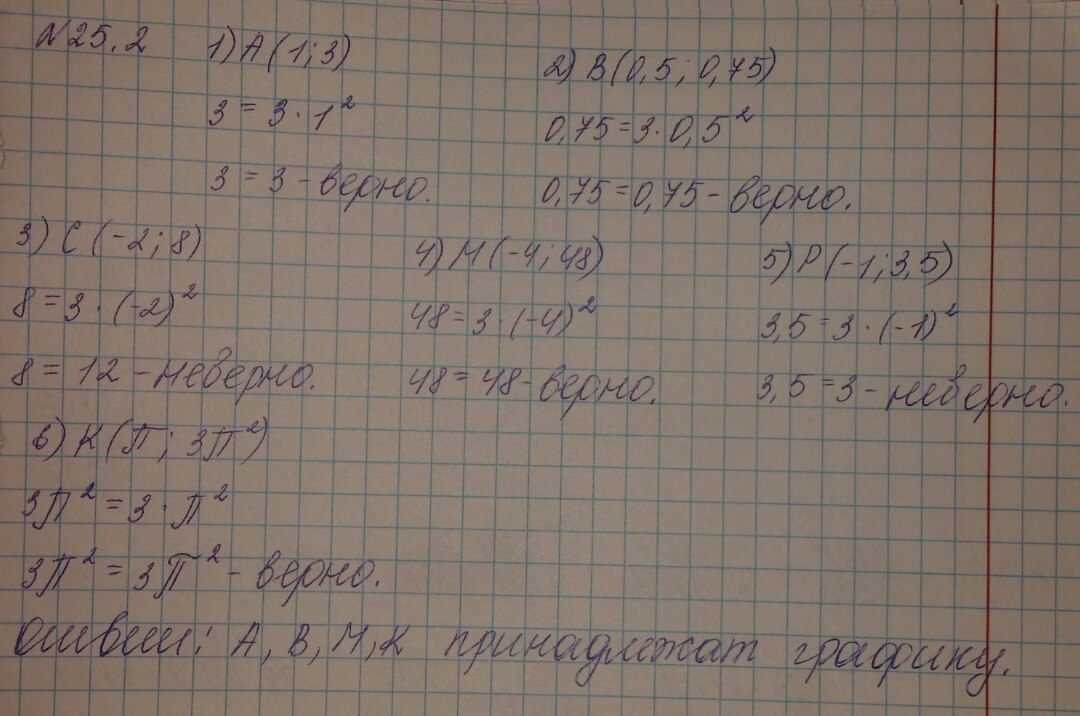 №25.2
1) А(1;3)
3 = 3 · 1²
3 = 3 - верно.
2) В(0,5; 0,75)
0,75 = 3 · 0,5²
0,75 = 0,75 - верно.
3) С(-2; 8)
8 = 3 · (-2)²
8 = 12 - неверно.
4) М(-4; 48)
48 = 3 · (-4)²
48 = 48 - верно.
5) Р(-1; 3,5)
3,5 = 3 · (-1)²
3,5 = 3 - неверно.
6) К(П; 3П²)
3П² = 3 · П²
3П² = 3П² - верно.
Ответ: А, В, М, К принадлежат графику.